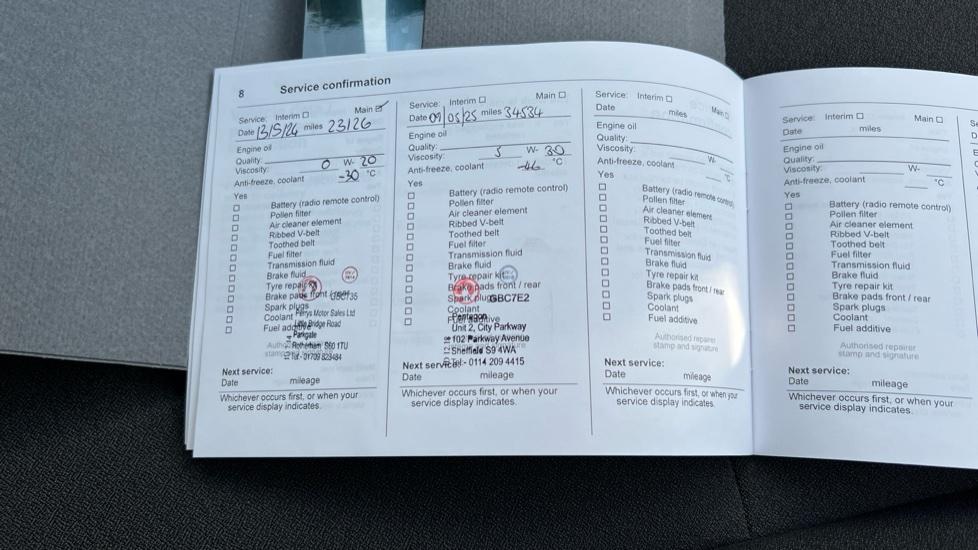 8 Service confirmation
Service: Interim □ Main ☑
Date 13/5/24 miles 23126
Engine oil
Quality:
Viscosity: 0 W- 20
Anti-freeze, coolant -30 °C
Yes
□ Battery (radio remote control)
□ Pollen filter
□ Air cleaner element
□ Ribbed V-belt
□ Toothed belt
□ Fuel filter
□ Transmission fluid
□ Brake fluid
□ Tyre repair
□ Brake pads front / rear
□ Spark plugs
□ Coolant
□ Fuel additive
Perrys Motor Sales Ltd
Little Bridge Road
Parkgate
Rotherham S60 1TU
Tel - 01709 823484
Next service:
Date mileage
Whichever occurs first, or when your
service display indicates.
Service: Interim □ Main □
Date 09/05/25 miles 34534
Engine oil
Quality:
Viscosity: 5 W- 30
Anti-freeze, coolant °C
Yes
□ Battery (radio remote control)
□ Pollen filter
□ Air cleaner element
□ Ribbed V-belt
□ Toothed belt
□ Fuel filter
□ Transmission fluid
□ Brake fluid
□ Tyre repair kit
□ Brake pads front / rear
□ Spark plugs GBC7E2
□ Coolant
□ Fuel additive
Pentagon
Unit 2, City Parkway
102 Parkway Avenue
Sheffield S9 4WA
Tel:- 0114 209 4415
Next service:
Date mileage
Whichever occurs first, or when your
service display indicates.
Service: Interim □ Main □
Date miles
Engine oil
Quality:
Viscosity: W-
Anti-freeze, coolant °C
Yes
□ Battery (radio remote control)
□ Pollen filter
□ Air cleaner element
□ Ribbed V-belt
□ Toothed belt
□ Fuel filter
□ Transmission fluid
□ Brake fluid
□ Tyre repair kit
□ Brake pads front / rear
□ Spark plugs
□ Coolant
□ Fuel additive
Authorised repairer
stamp and signature
Next service:
Date mileage
Whichever occurs first, or when your
service display indicates.
Service: Interim □ Main □
Date miles
Engine oil
Quality:
Viscosity: W-
Anti-freeze, coolant °C
Yes
□ Battery (radio remote control)
□ Pollen filter
□ Air cleaner element
□ Ribbed V-belt
□ Toothed belt
□ Fuel filter
□ Transmission fluid
□ Brake fluid
□ Tyre repair kit
□ Brake pads front / rear
□ Spark plugs
□ Coolant
□ Fuel additive
Authorised repairer
stamp and signature
Next service:
Date mileage
Whichever occurs first, or when your
service display indicates.